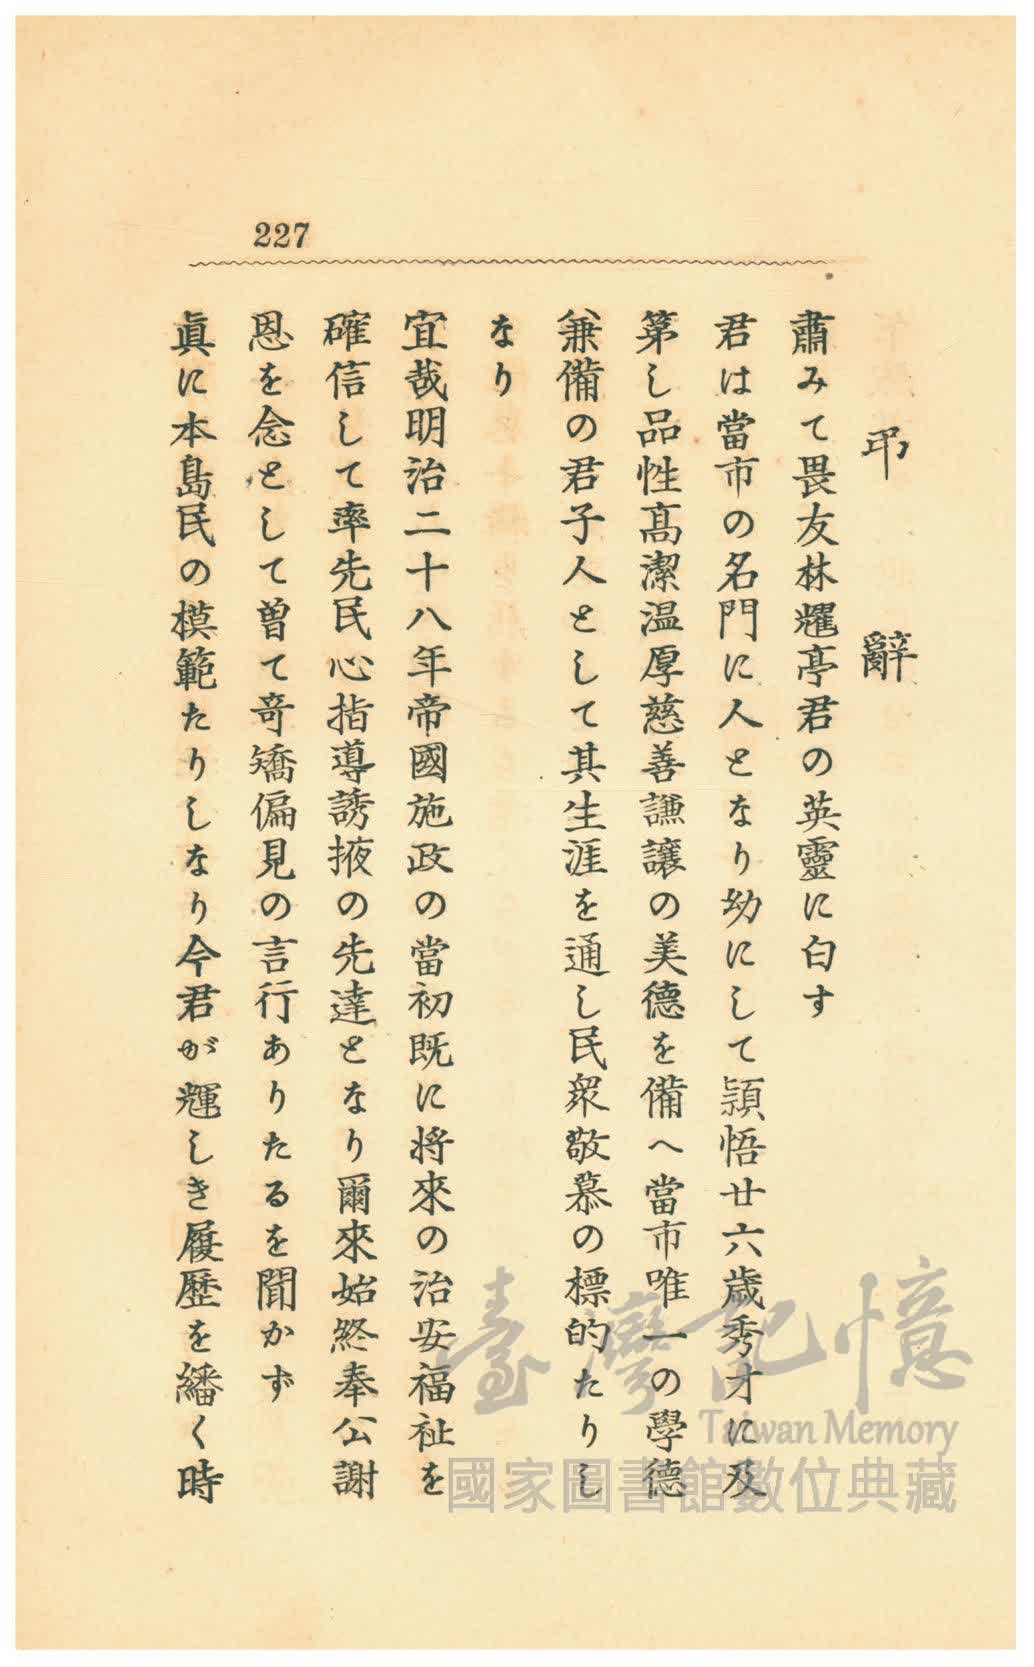 227
弔辭
肅みて畏友林耀亭君の英靈に白す
君は當市の名門に人となり幼にして頴悟廿六歲秀才に及
第し品性高潔溫厚慈善謙讓の美德を備へ當市唯一の學德
兼備の君子人として其生涯を通し民衆敬慕の標的たりし
なり
宜哉明治二十八年帝國施政の當初既に將來の治安福祉を
確信して率先民心指導誘掖の先達となり爾來始終奉公謝
恩を念として曾て奇矯偏見の言行ありたるを聞かず
眞に本島民の模範たりしなり今君が輝しき履歷を繙く時
臺灣記憶
Taiwan Memory
國家圖書館數位典藏